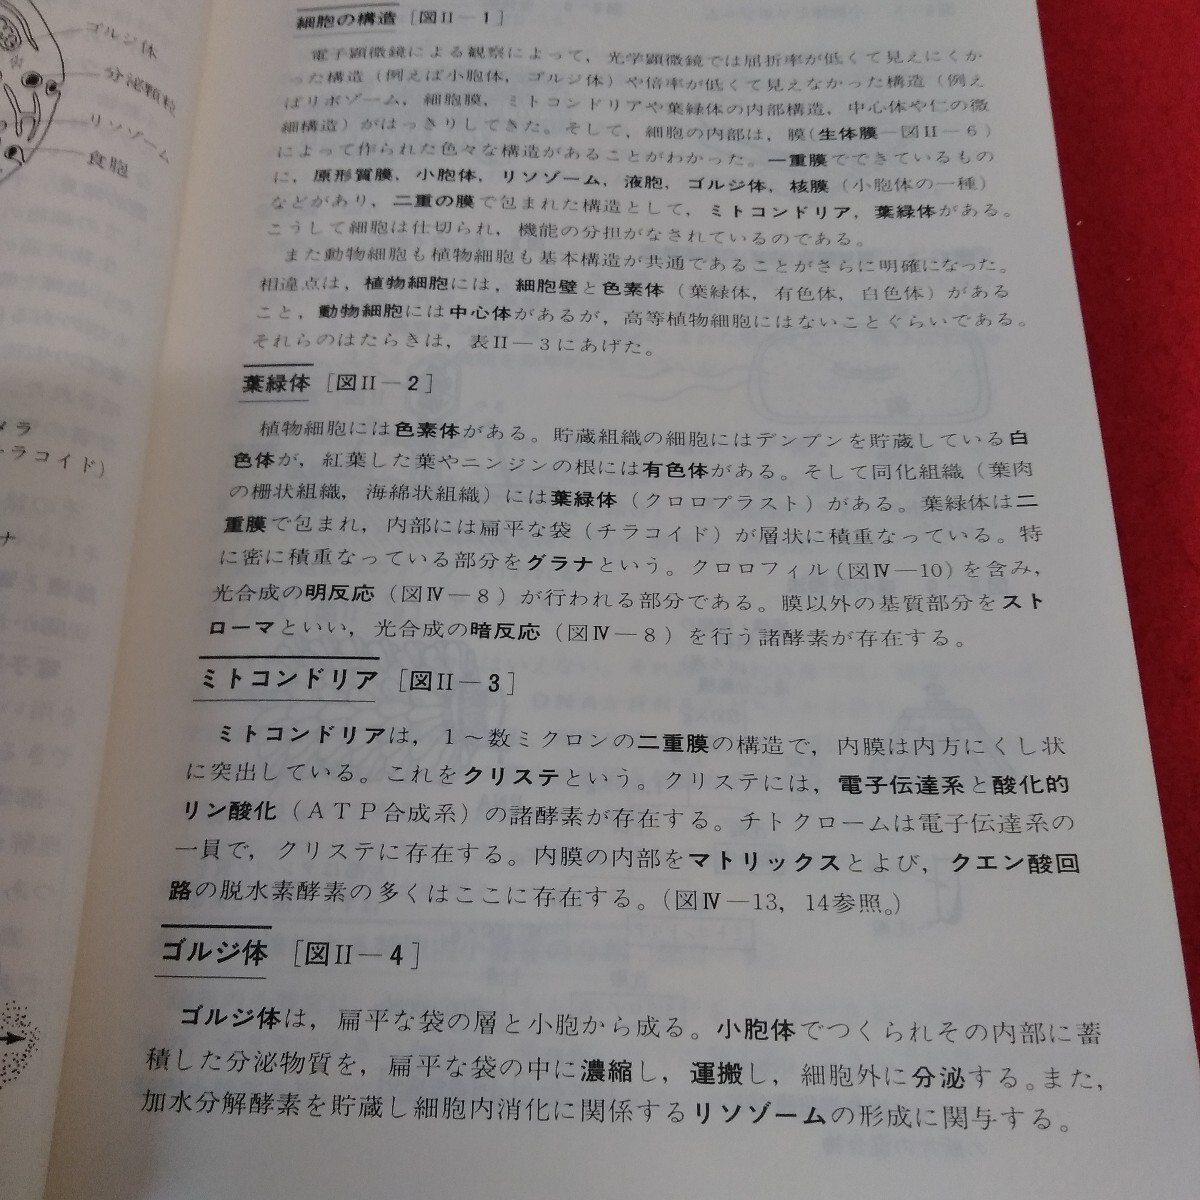 ゴルジ体
分泌顆粒
リソゾーム
食胞
細胞の構造 [図II－1]
電子顕微鏡による観察によって，光学顕微鏡では屈折率が低くて見えにくか
った構造（例えば小胞体，ゴルジ体）や倍率が低くて見えなかった構造（例え
ばリボゾーム，細胞膜，ミトコンドリアや葉緑体の内部構造，中心体や仁の微
細構造）がはっきりしてきた。そして，細胞の内部は，膜（生体膜―図II－6）
によって作られた色々な構造があることがわかった。一重膜でできているもの
に，原形質膜，小胞体，リソゾーム，液胞，ゴルジ体，核膜（小胞体の一種）
などがあり，二重の膜で包まれた構造として，ミトコンドリア，葉緑体がある。
こうして細胞は仕切られ，機能の分担がなされているのである。
また動物細胞も植物細胞も基本構造が共通であることがさらに明確になった。
相違点は，植物細胞には，細胞壁と色素体（葉緑体，有色体，白色体）がある
こと，動物細胞には中心体があるが，高等植物細胞にはないことぐらいである。
それらのはたらきは，表II－3にあげた。
葉緑体 [図II－2]
植物細胞には色素体がある。貯蔵組織の細胞にはデンプンを貯蔵している白
色体が，紅葉した葉やニンジンの根には有色体がある。そして同化組織（葉肉
の柵状組織，海綿状組織）には葉緑体（クロロプラスト）がある。葉緑体は二
重膜で包まれ，内部には扁平な袋（チラコイド）が層状に積重なっている。特
に密に積重なっている部分をグラナという。クロロフィル（図IV―10）を含み，
光合成の明反応（図IV－8）が行われる部分である。膜以外の基質部分をスト
ローマといい，光合成の暗反応（図IV－8）を行う諸酵素が存在する。
ミトコンドリア [図II－3]
ミトコンドリアは，1～数ミクロンの二重膜の構造で，内膜は内方にくし状
に突出している。これをクリステという。クリステには，電子伝達系と酸化的
リン酸化（ＡＴＰ合成系）の諸酵素が存在する。チトクロームは電子伝達系の
一員で，クリステに存在する。内膜の内部をマトリックスとよび，クエン酸回
路の脱水素酵素の多くはここに存在する。（図IV―13，14参照。）
ゴルジ体 [図II－4]
ゴルジ体は，扁平な袋の層と小胞から成る。小胞体でつくられその内部に蓄
積した分泌物質を，扁平な袋の中に濃縮し，運搬し，細胞外に分泌する。また，
加水分解酵素を貯蔵し細胞内消化に関係するリソゾームの形成に関与する。
メラ
ラコイド）
ナ